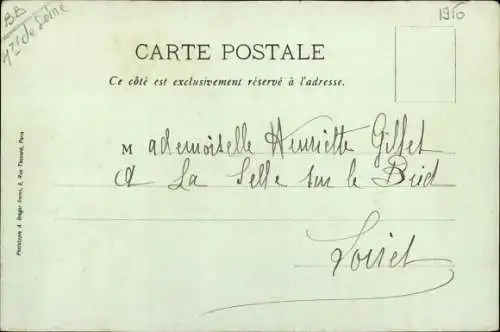 BB
de Seine
1910
CARTE POSTALE
Ce côté est exclusivement réservé à l'adresse.
Mademoiselle Henriette Gillet
à La Selle sur le Bied
Loiret
Phototypie A. Breger Frères, 9, Rue Thénard, Paris